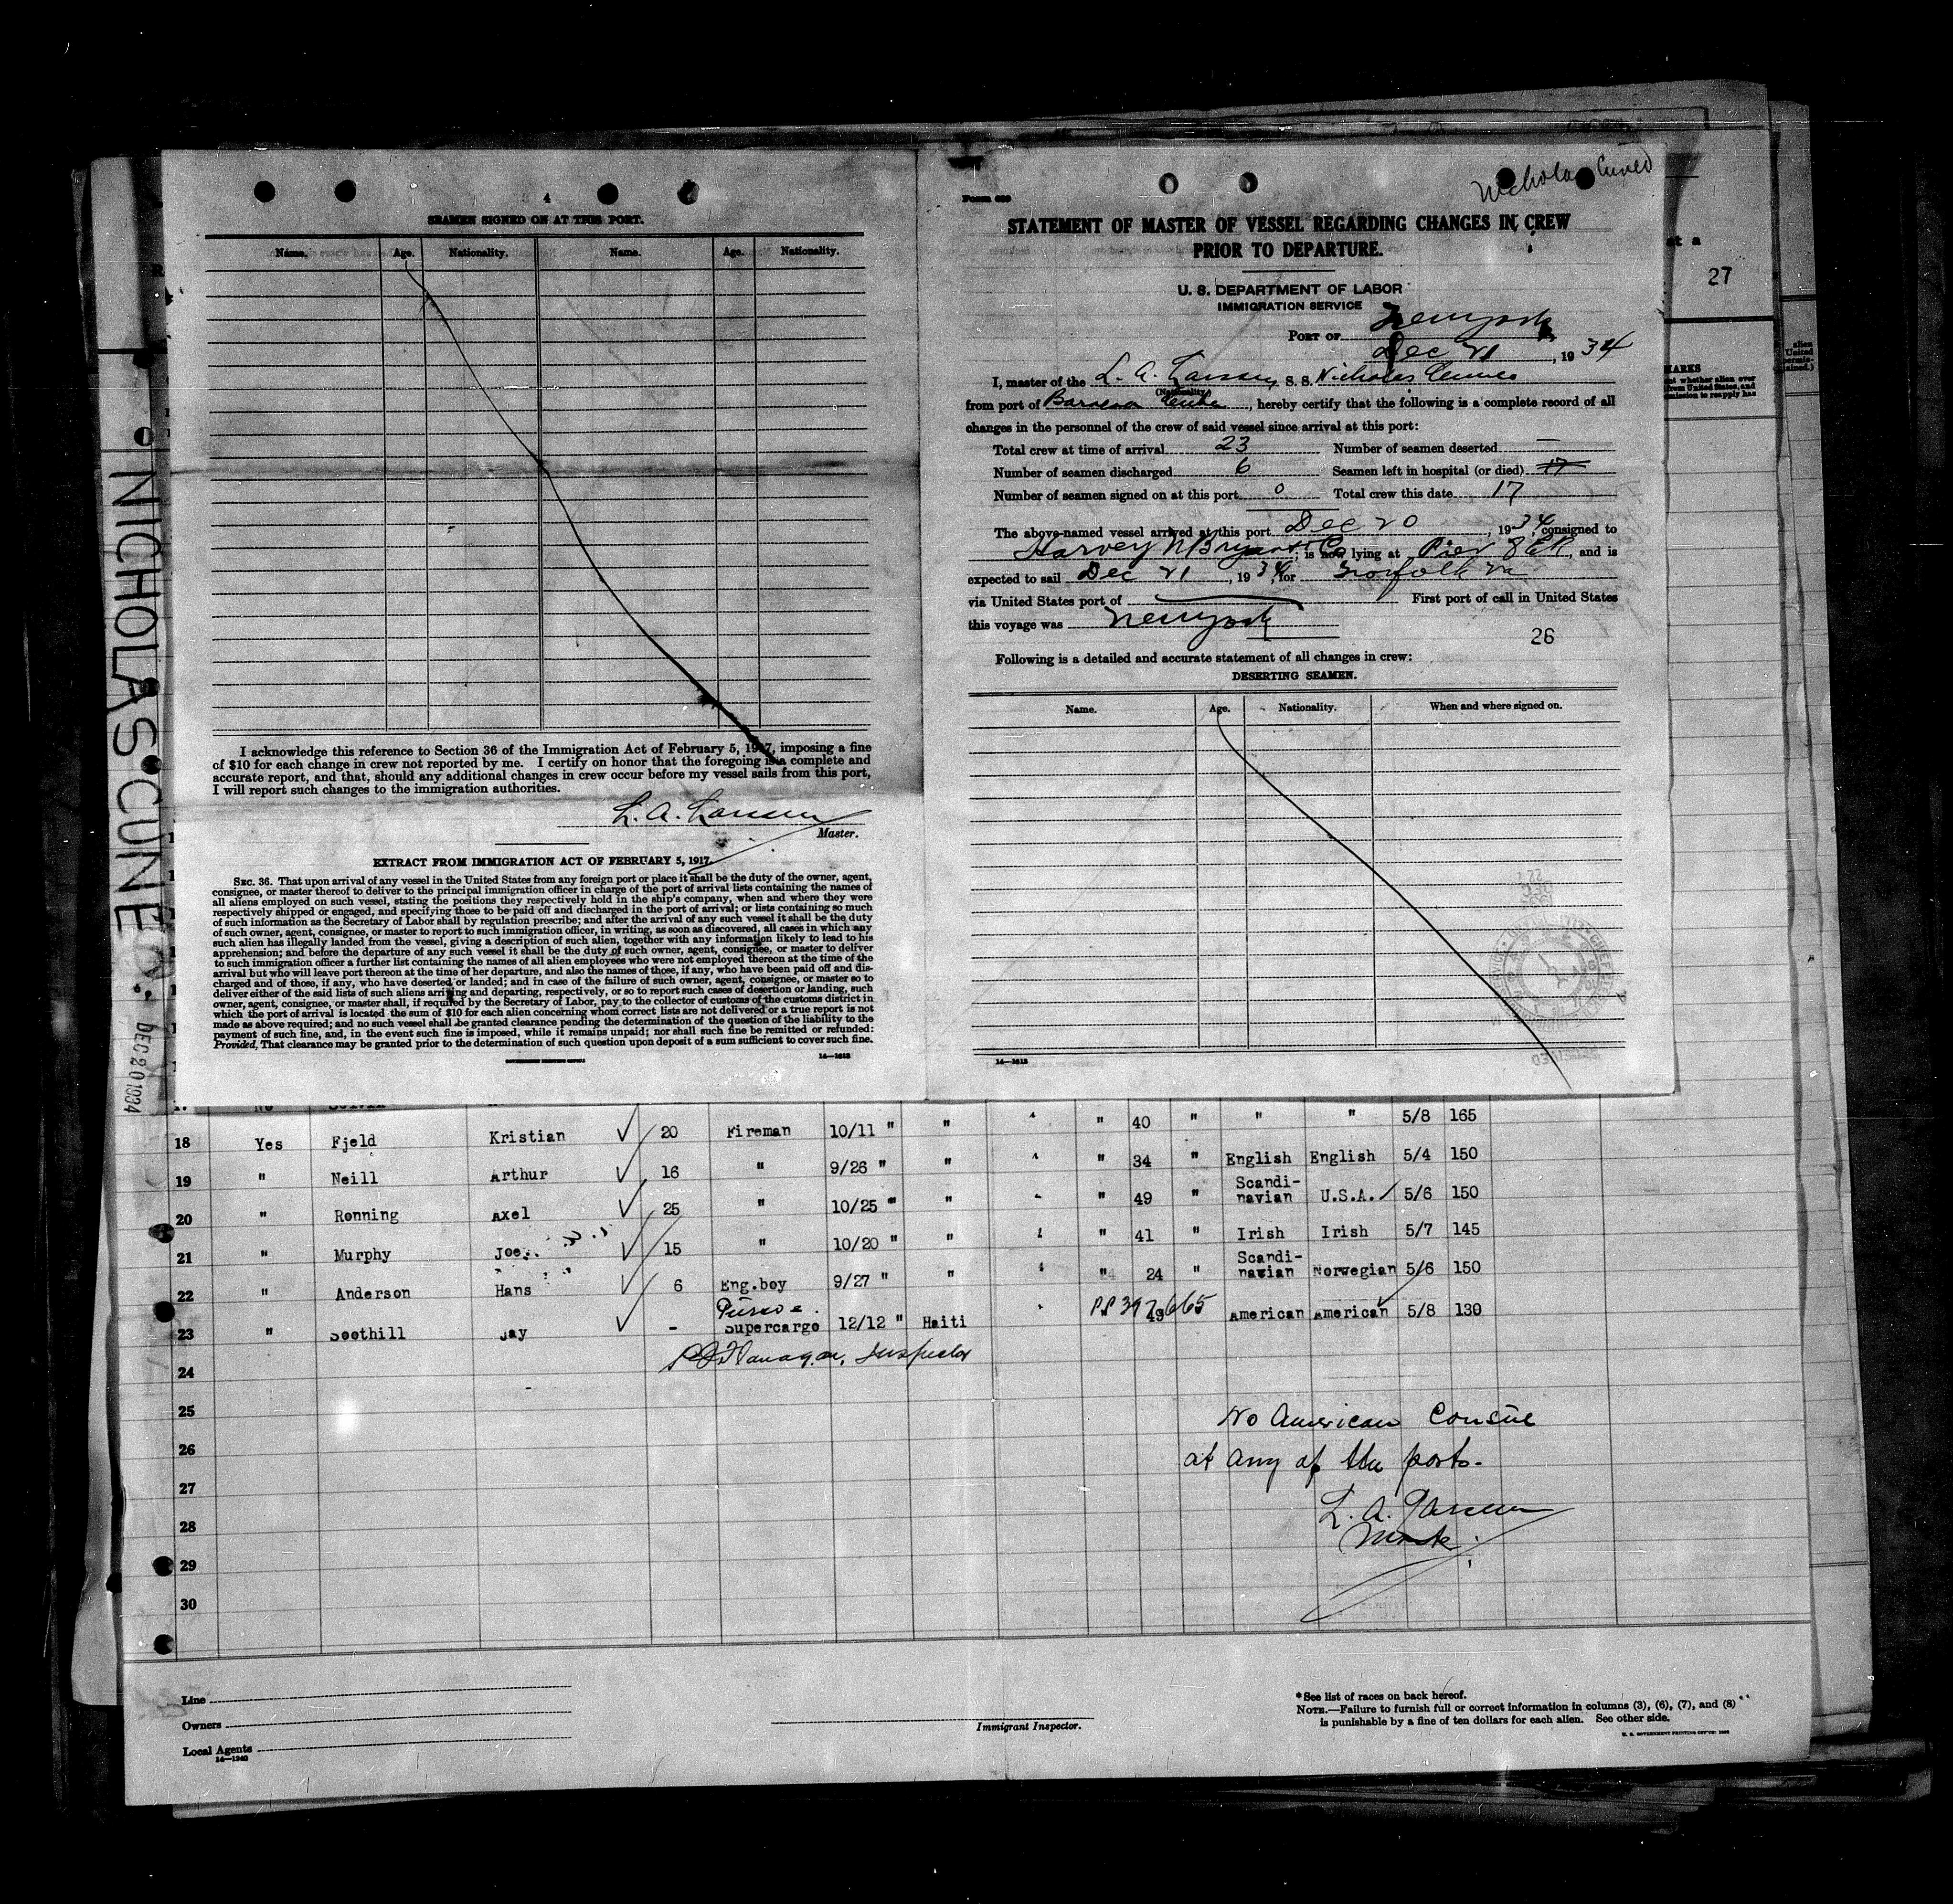 NICHOLAS CUNEO.
DEC 20 1934
4
SEAMEN SIGNED ON AT THIS PORT.
Name. Age. Nationality. Name. Age. Nationality.
I acknowledge this reference to Section 36 of the Immigration Act of February 5, 1917, imposing a fine
of $10 for each change in crew not reported by me. I certify on honor that the foregoing is a complete and
accurate report, and that, should any additional changes in crew occur before my vessel sails from this port,
I will report such changes to the immigration authorities.
L. A. Larsen
Master.
EXTRACT FROM IMMIGRATION ACT OF FEBRUARY 5, 1917.
SEC. 36. That upon arrival of any vessel in the United States from any foreign port or place it shall be the duty of the owner, agent,
consignee, or master thereof to deliver to the principal immigration officer in charge of the port of arrival lists containing the names of
all aliens employed on such vessel, stating the positions they respectively hold in the ship's company, when and where they were
respectively shipped or engaged, and specifying those to be paid off and discharged in the port of arrival; or lists containing so much
of such information as the Secretary of Labor shall by regulation prescribe; and after the arrival of any such vessel it shall be the duty
of such owner, agent, consignee, or master to report to such immigration officer, in writing, as soon as discovered, all cases in which any
such alien has illegally landed from the vessel, giving a description of such alien, together with any information likely to lead to his
apprehension; and before the departure of any such vessel it shall be the duty of such owner, agent, consignee, or master to deliver
to such immigration officer a further list containing the names of all alien employees who were not employed thereon at the time of the
arrival but who will leave port thereon at the time of her departure, and also the names of those, if any, who have been paid off and dis-
charged and of those, if any, who have deserted or landed; and in case of the failure of such owner, agent, consignee, or master so to
deliver either of the said lists of such aliens arriving and departing, respectively, or so to report such cases of desertion or landing, such
owner, agent, consignee, or master shall, if required by the Secretary of Labor, pay to the collector of customs of the customs district in
which the port of arrival is located the sum of $10 for each alien concerning whom correct lists are not delivered or a true report is not
made as above required; and no such vessel shall be granted clearance pending the determination of the question of the liability to the
payment of such fine, and, in the event such fine is imposed, while it remains unpaid; nor shall such fine be remitted or refunded:
Provided, That clearance may be granted prior to the determination of such question upon deposit of a sum sufficient to cover such fine.
GOVERNMENT PRINTING OFFICE 14—1613
Nicholas Cuneo
Form 689
STATEMENT OF MASTER OF VESSEL REGARDING CHANGES IN CREW
PRIOR TO DEPARTURE.
U. S. DEPARTMENT OF LABOR
IMMIGRATION SERVICE
PORT OF New York
Dec 21, 1934
I, master of the L. A. Larsen, S. S. Nicholas Cuneo
(Nationality)
from port of Baracoa Cuba, hereby certify that the following is a complete record of all
changes in the personnel of the crew of said vessel since arrival at this port:
Total crew at time of arrival 23 Number of seamen deserted —
Number of seamen discharged 6 Seamen left in hospital (or died) 17
Number of seamen signed on at this port 0 Total crew this date 17
The above-named vessel arrived at this port Dec 20, 1934, consigned to
Harvey N Bryant Co, is now lying at Pier 8 ER, and is
expected to sail Dec 21, 1934, for Norfolk Va
via United States port of — First port of call in United States
this voyage was New York
26
Following is a detailed and accurate statement of all changes in crew:
DESERTING SEAMEN.
Name. Age. Nationality. When and where signed on.
14—1613
27
17 No " 40 " " " 5/8 165
18 Yes Fjeld Kristian 20 Fireman 10/11 " " " " 34 " English English 5/4 150
19 " Neill Arthur 16 " 9/26 " " " " 49 " Scandi-navian U.S.A. 5/6 150
20 " Ronning Axel 25 " 10/25 " " " " 41 " Irish Irish 5/7 145
21 " Murphy Joe 15 " 10/20 " " " " 24 " Scandi-navian Norwegian 5/6 150
22 " Anderson Hans 6 Eng.boy 9/27 " "
Purser.
23 " Soothill Jay - Supercargo 12/12 " Haiti PP 397665 49 American American 5/8 130
24
Flanagan, Inspector
25
No American Consul
26
at any of the ports.
27
28
L. A. Larsen
Master
29
30
Line
Owners
Local Agents
14—1240
Immigrant Inspector.
*See list of races on back hereof.
NOTE.—Failure to furnish full or correct information in columns (3), (6), (7), and (8)
is punishable by a fine of ten dollars for each alien. See other side.
U. S. GOVERNMENT PRINTING OFFICE